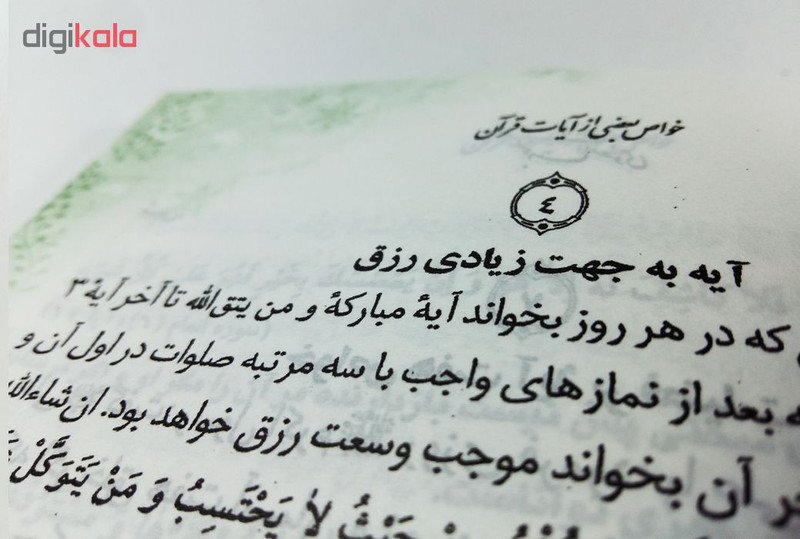 digikala
خواص بعضی از آیات قرآن
٤
آیه به جهت زیادی رزق
که در هر روز بخواند آیهٔ مبارکهٔ و من یتق‌الله تا آخر آیهٔ ۳
بعد از نمازهای واجب با سه مرتبه صلوات در اول آن و
آن بخواند موجب وسعت رزق خواهد بود. ان‌شاءالله
لَا يَحْتَسِبُ وَ مَنْ يَتَوَكَّلْ